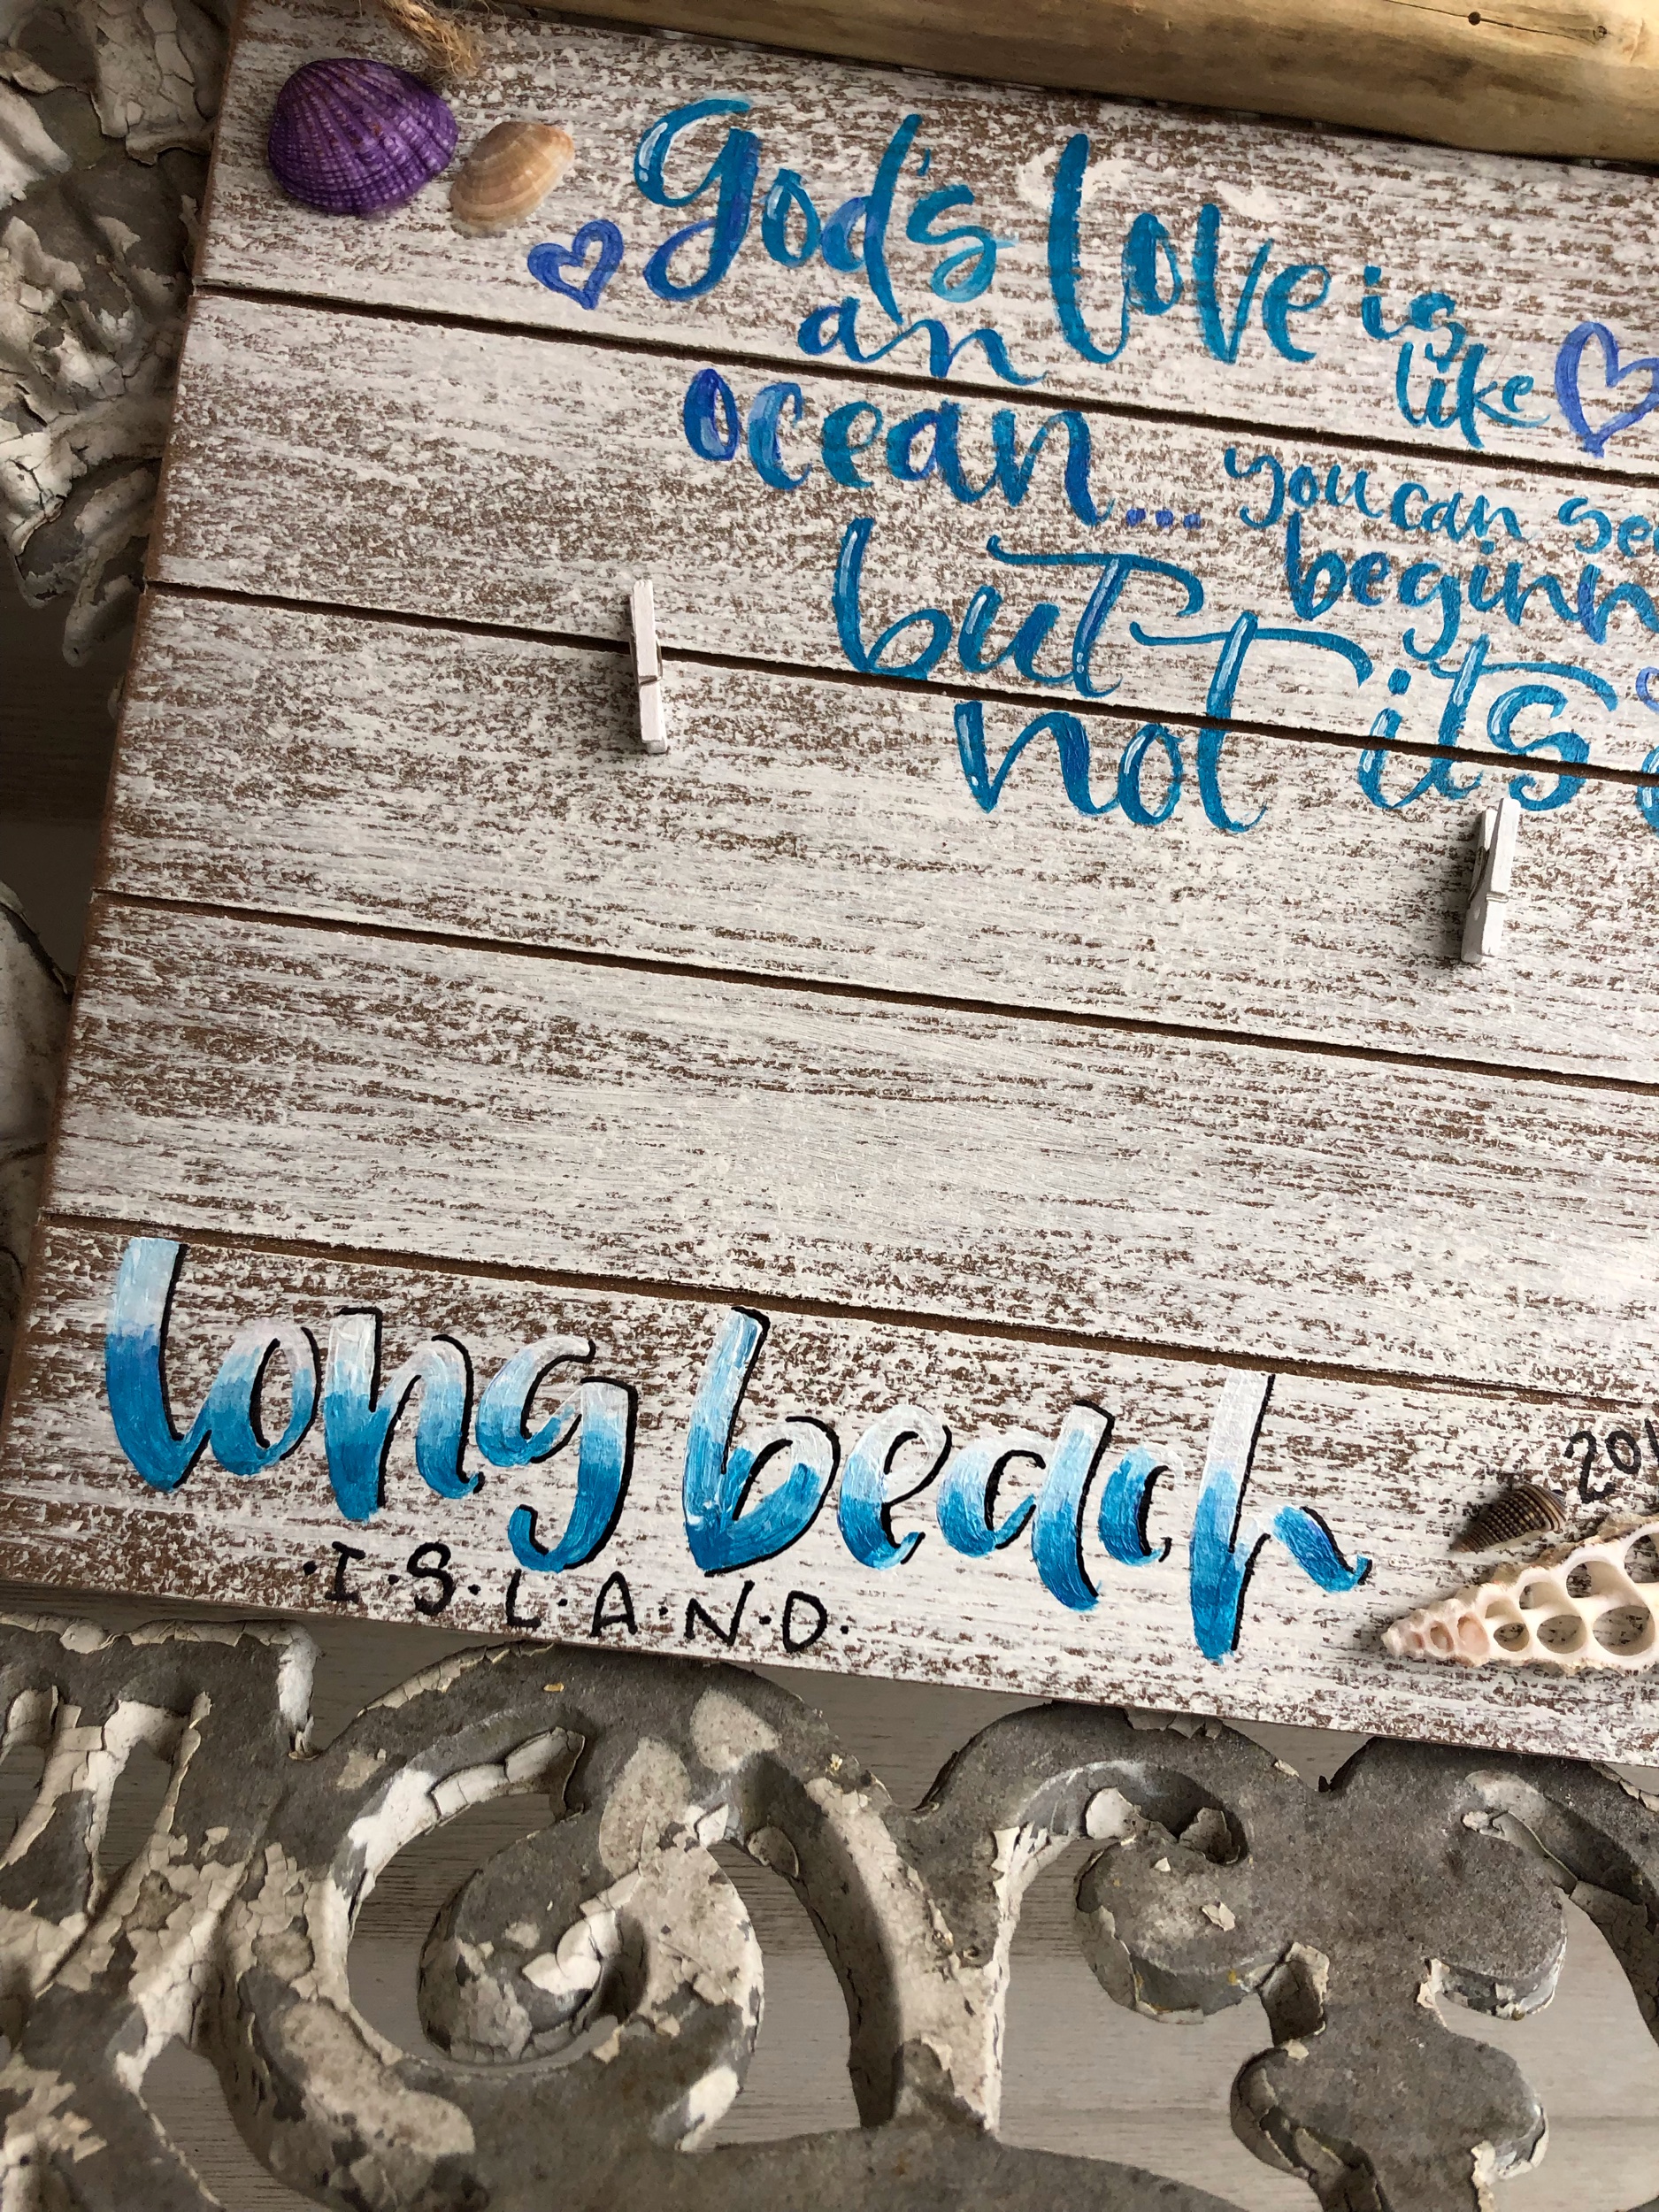 God's love is
like
an
ocean... you can see
beginn
but
not its
long beach
201
·I·S·L·A·N·D·